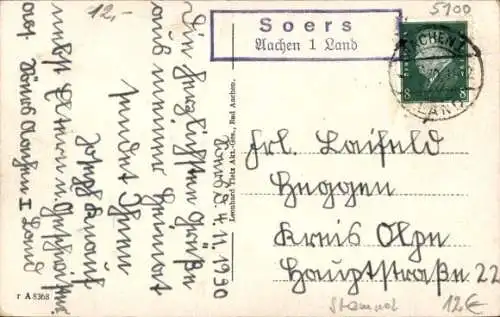 12.-
5100
Soers
Aachen 1 Land
AACHEN 1
LAND
8 8
Soers d. 4. 11. 1930
Die herzlichsten Grüße
aus meiner Heimat
sendet Ihnen
Joseph
nebst Eltern u. Geschwister
Aachen I Land
Leonhard Tietz Akt.-Ges., Bad Aachen.
Frl. Laifeld
Heggen
Kreis Olpe
Hauptstraße 22
r A 8368
Stempel
12€